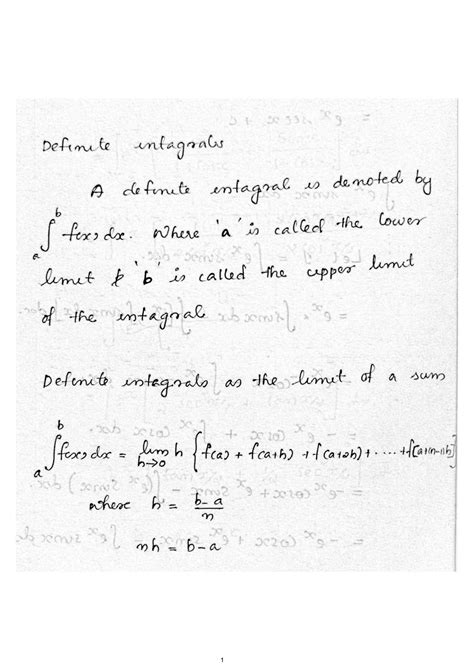 Definite intagrals
A definite intagral is denoted by
∫ₐᵇ f(x) dx. Where 'a' is called the lower
limit & 'b' is called the upper limit
of the intagral
Definite intagrals as the limit of a sum
∫ₐᵇ f(x) dx = lim h→0 h { f(a) + f(a+h) + f(a+2h) + .... + f[a+(n-1)h]
where h = b-a / n
nh = b-a
1